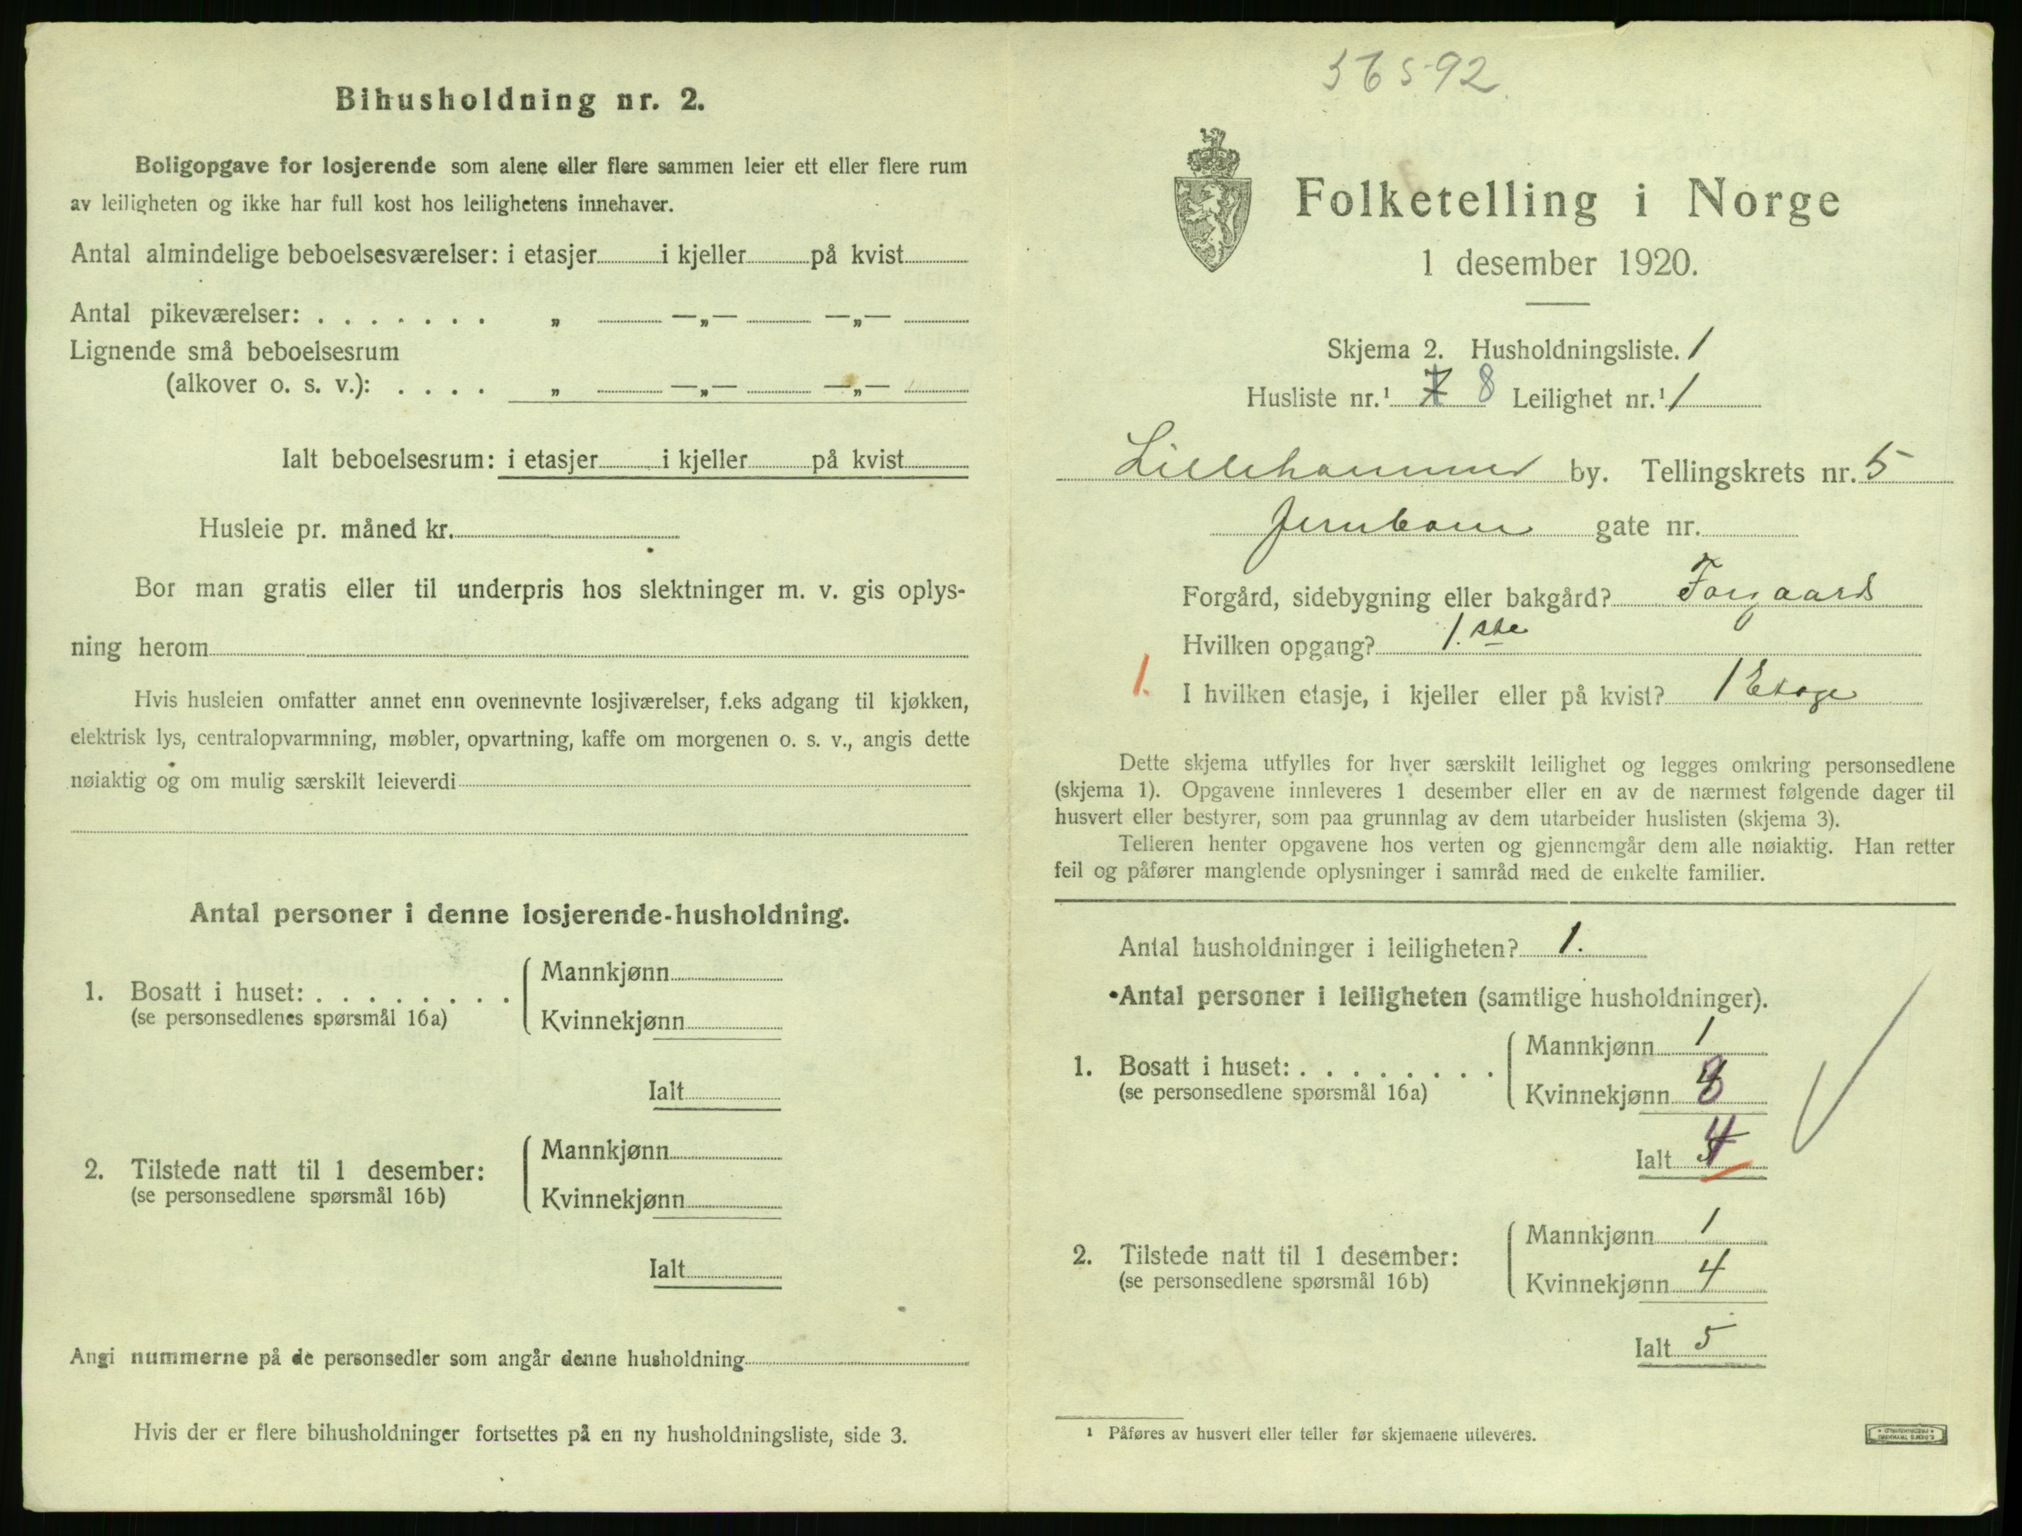 Bihusholdning nr. 2.
Boligopgave for losjerende som alene eller flere sammen leier ett eller flere rum
av leiligheten og ikke har full kost hos leilighetens innehaver.
Antal almindelige beboelsesværelser: i etasjer i kjeller på kvist
Antal pikeværelser: . . . . . . . „ —„— —„—
Lignende små beboelsesrum
(alkover o. s. v.): . . . . „ —„— —„—
Ialt beboelsesrum: i etasjer i kjeller på kvist
Husleie pr. måned kr.
Bor man gratis eller til underpris hos slektninger m. v. gis oplys-
ning herom
Hvis husleien omfatter annet enn ovennevnte losjiværelser, f.eks adgang til kjøkken,
elektrisk lys, centralopvarmning, møbler, opvartning, kaffe om morgenen o. s. v., angis dette
nøiaktig og om mulig særskilt leieverdi
Antal personer i denne losjerende-husholdning.
1. Bosatt i huset: . . . . . . . .
(se personsedlenes spørsmål 16a)
Mannkjønn
Kvinnekjønn
Ialt
2. Tilstede natt til 1 desember:
(se personsedlene spørsmål 16b)
Mannkjønn
Kvinnekjønn
Ialt
Angi nummerne på de personsedler som angår denne husholdning
Hvis der er flere bihusholdninger fortsettes på en ny husholdningsliste, side 3.
36592
Folketelling i Norge
1 desember 1920.
Skjema 2. Husholdningsliste. 1
Husliste nr.¹ 7 8 Leilighet nr.¹ 1
Lillehammer by. Tellingskrets nr. 5
Jernbane gate nr.
Forgård, sidebygning eller bakgård? Forgaard
Hvilken opgang? 1.ste
1. I hvilken etasje, i kjeller eller på kvist? 1 Etage
Dette skjema utfylles for hver særskilt leilighet og legges omkring personsedlene
(skjema 1). Opgavene innleveres 1 desember eller en av de nærmest følgende dager til
husvert eller bestyrer, som paa grunnlag av dem utarbeider huslisten (skjema 3).
Telleren henter opgavene hos verten og gjennemgår dem alle nøiaktig. Han retter
feil og påfører manglende oplysninger i samråd med de enkelte familier.
Antal husholdninger i leiligheten? 1.
Antal personer i leiligheten (samtlige husholdninger).
1. Bosatt i huset: . . . . . . . .
(se personsedlene spørsmål 16a)
Mannkjønn 1
Kvinnekjønn 3
Ialt 4
2. Tilstede natt til 1 desember:
(se personsedlene spørsmål 16b)
Mannkjønn 1
Kvinnekjønn 4
Ialt 5
¹ Påføres av husvert eller teller før skjemaene utleveres.